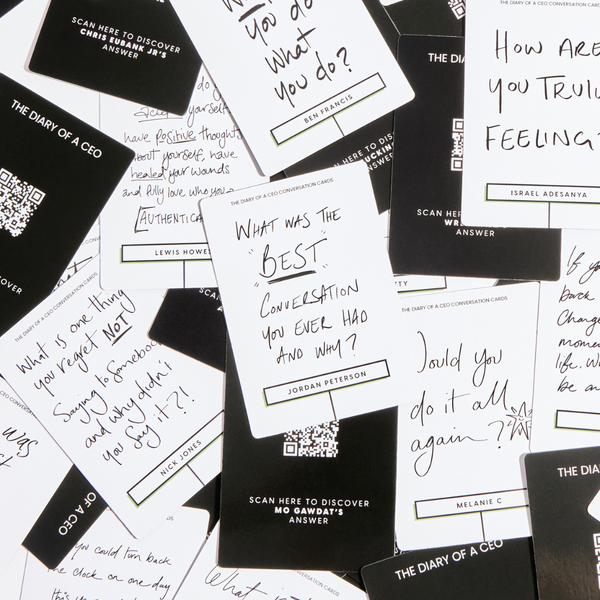 SCAN HERE TO DISCOVER
CHRIS EUBANK JR'S
ANSWER
you do
What
you do?
BEN FRANCIS
THE DIARY OF A CEO CONVERSATION CARDS
HOW ARE
YOU TRULY
FEELING?
ISRAEL ADESANYA
THE DIARY OF A CEO
yourself
have positive thoughts
about yourself, have
healed your wounds
and fully love who you
LEWIS HOWES
SCAN HERE
ANSWER
THE DIARY OF A CEO CONVERSATION CARDS
WHAT WAS THE
"BEST"
CONVERSATION
YOU EVER HAD
AND WHY?
JORDAN PETERSON
SCAN HERE TO DISCOVER
MO GAWDAT'S
ANSWER
What is one thing
you regret NOT
Saying to Somebody
and why didn't
you say it?!
NICK JONES
THE DIARY OF A CEO CONVERSATION CARDS
Would you
do it all
again?
MELANIE C
If you
back
Change
life. W
be an
was
OF A CEO
you could turn back
the clock on one day
What is
THE DIARY OF A CEO
THE DIA